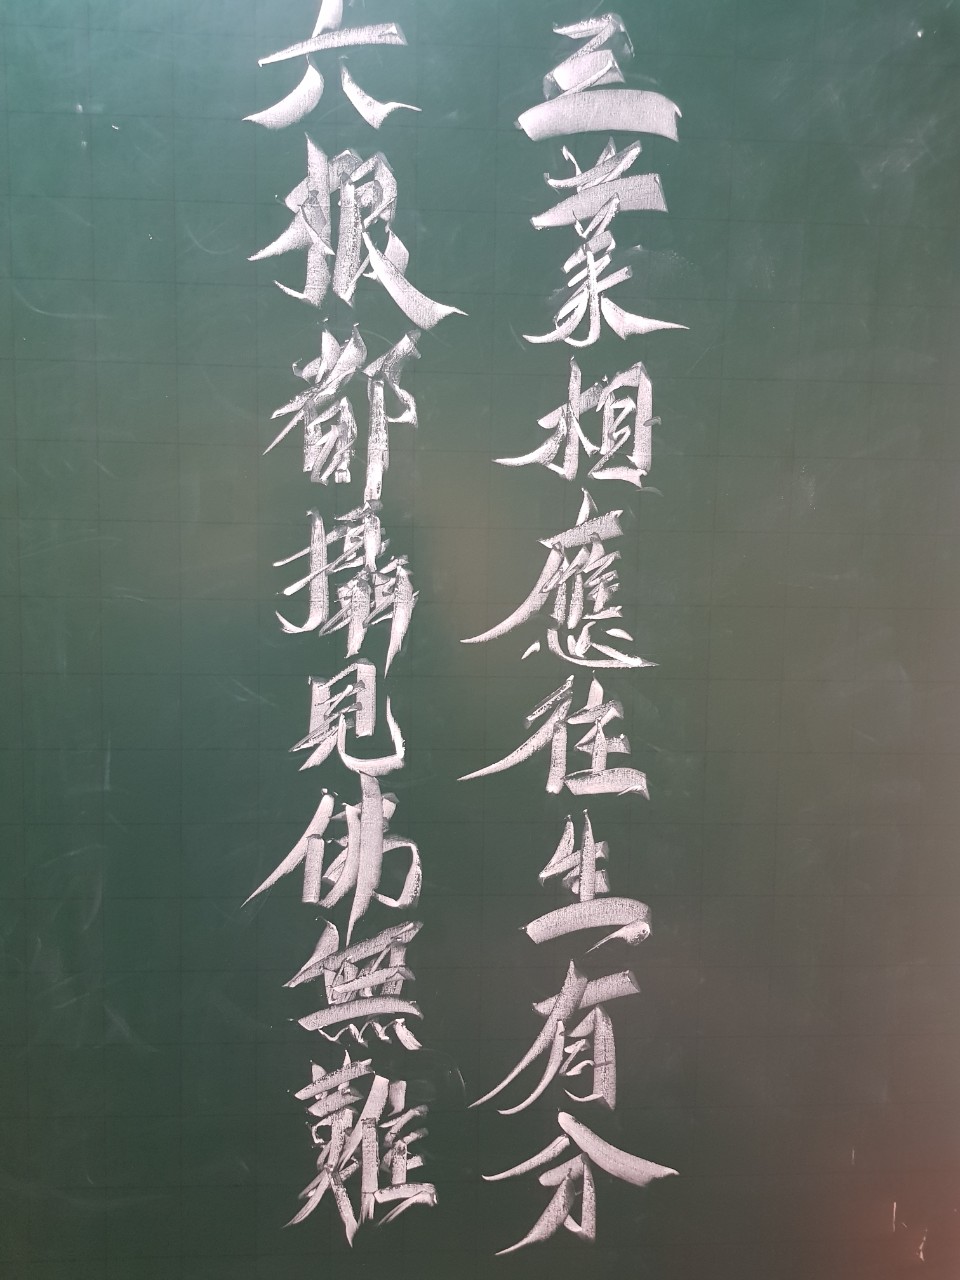 三業相應往生有分
六根都攝見佛無難